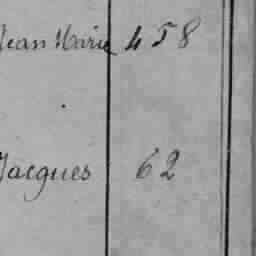 Jean Marie 458
Jacques 62